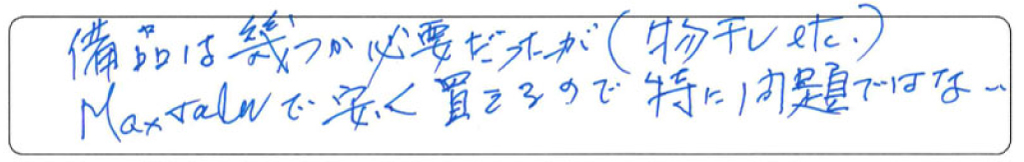 備品は幾つか必要だったが(物干しetc.)
MaxValuで安く買えるので特に問題ではない